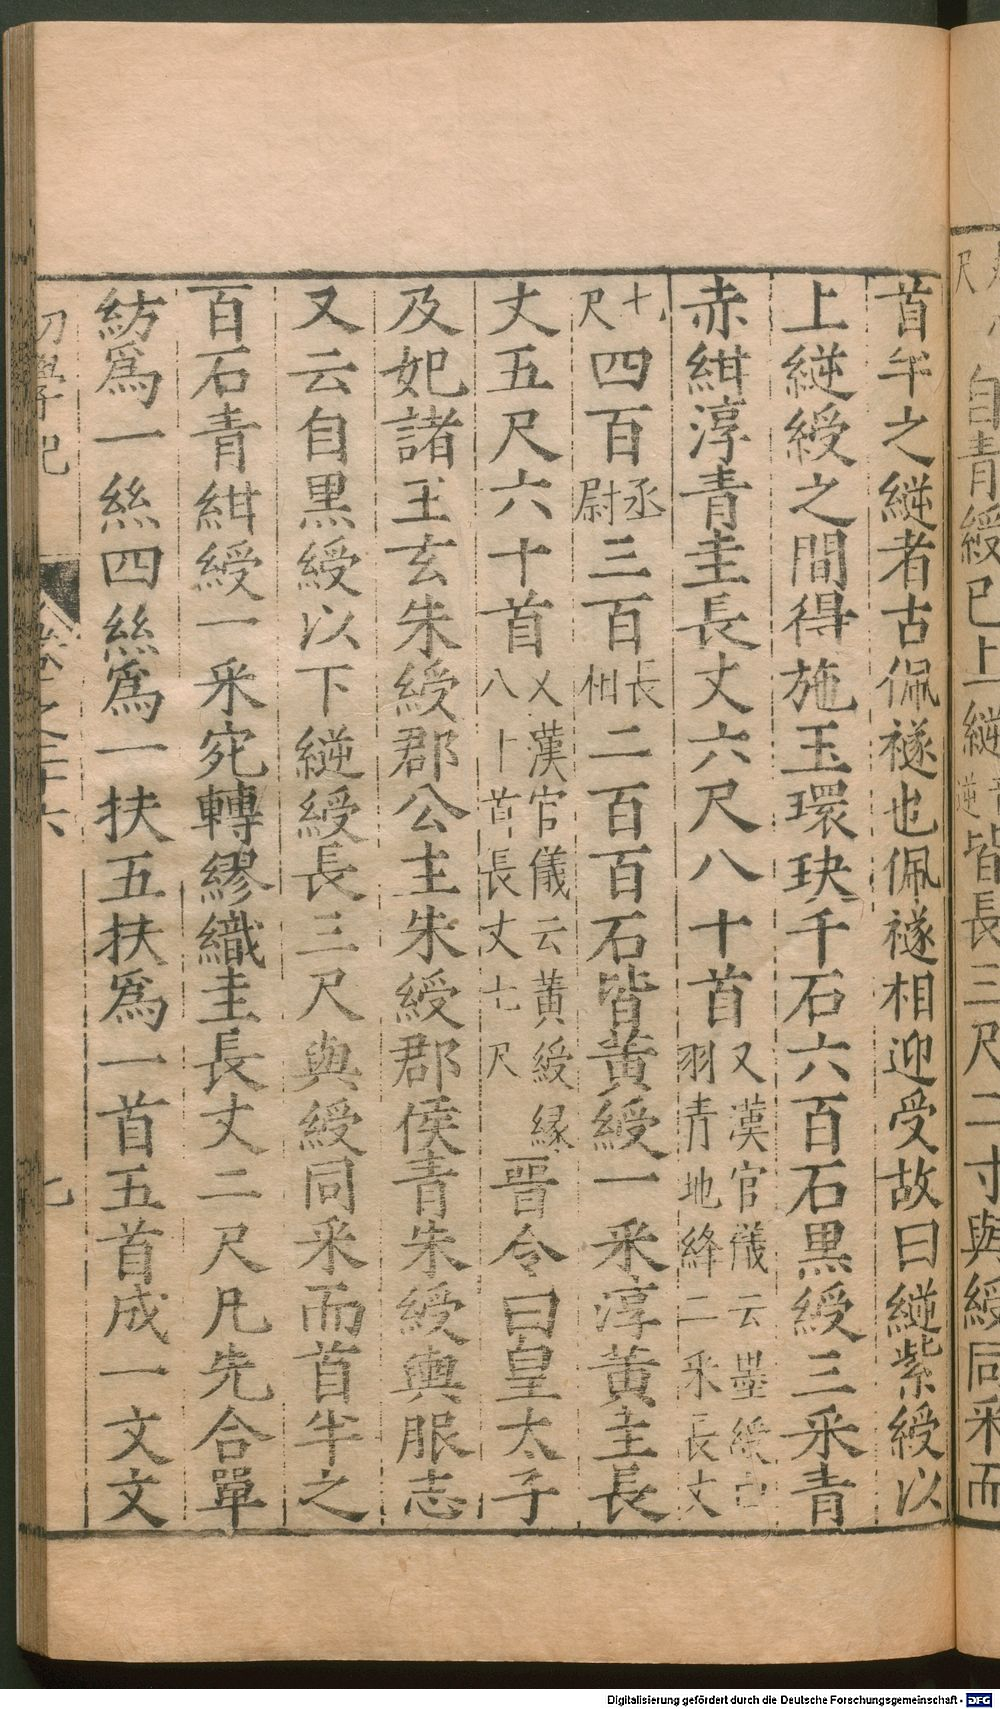 首半之縌者古佩襚也佩襚相迎受故曰縌紫綬以
上縌綬之間得施玉環玦千石六百石黑綬三采青
赤紺淳青圭長丈六尺八十首又漢官儀云墨綬白羽青地絳二采長丈
七尺四百丞尉三百長相二百百石皆黃綬一采淳黃圭長
丈五尺六十首又漢官儀云黃綬縁八十首長丈七尺晉令曰皇太子
及妃諸王玄朱綬郡公主朱綬郡侯青朱綬輿服志
又云自黑綬以下縌綬長三尺與綬同采而首半之
百石青紺綬一采宛轉繆織圭長丈二尺凡先合單
紡爲一絲四絲爲一扶五扶爲一首五首成一文文
初學記 卷之二十六 七
自青綬已上縌音逆皆長三尺二寸與綬同采而
Digitalisierung gefördert durch die Deutsche Forschungsgemeinschaft - DFG